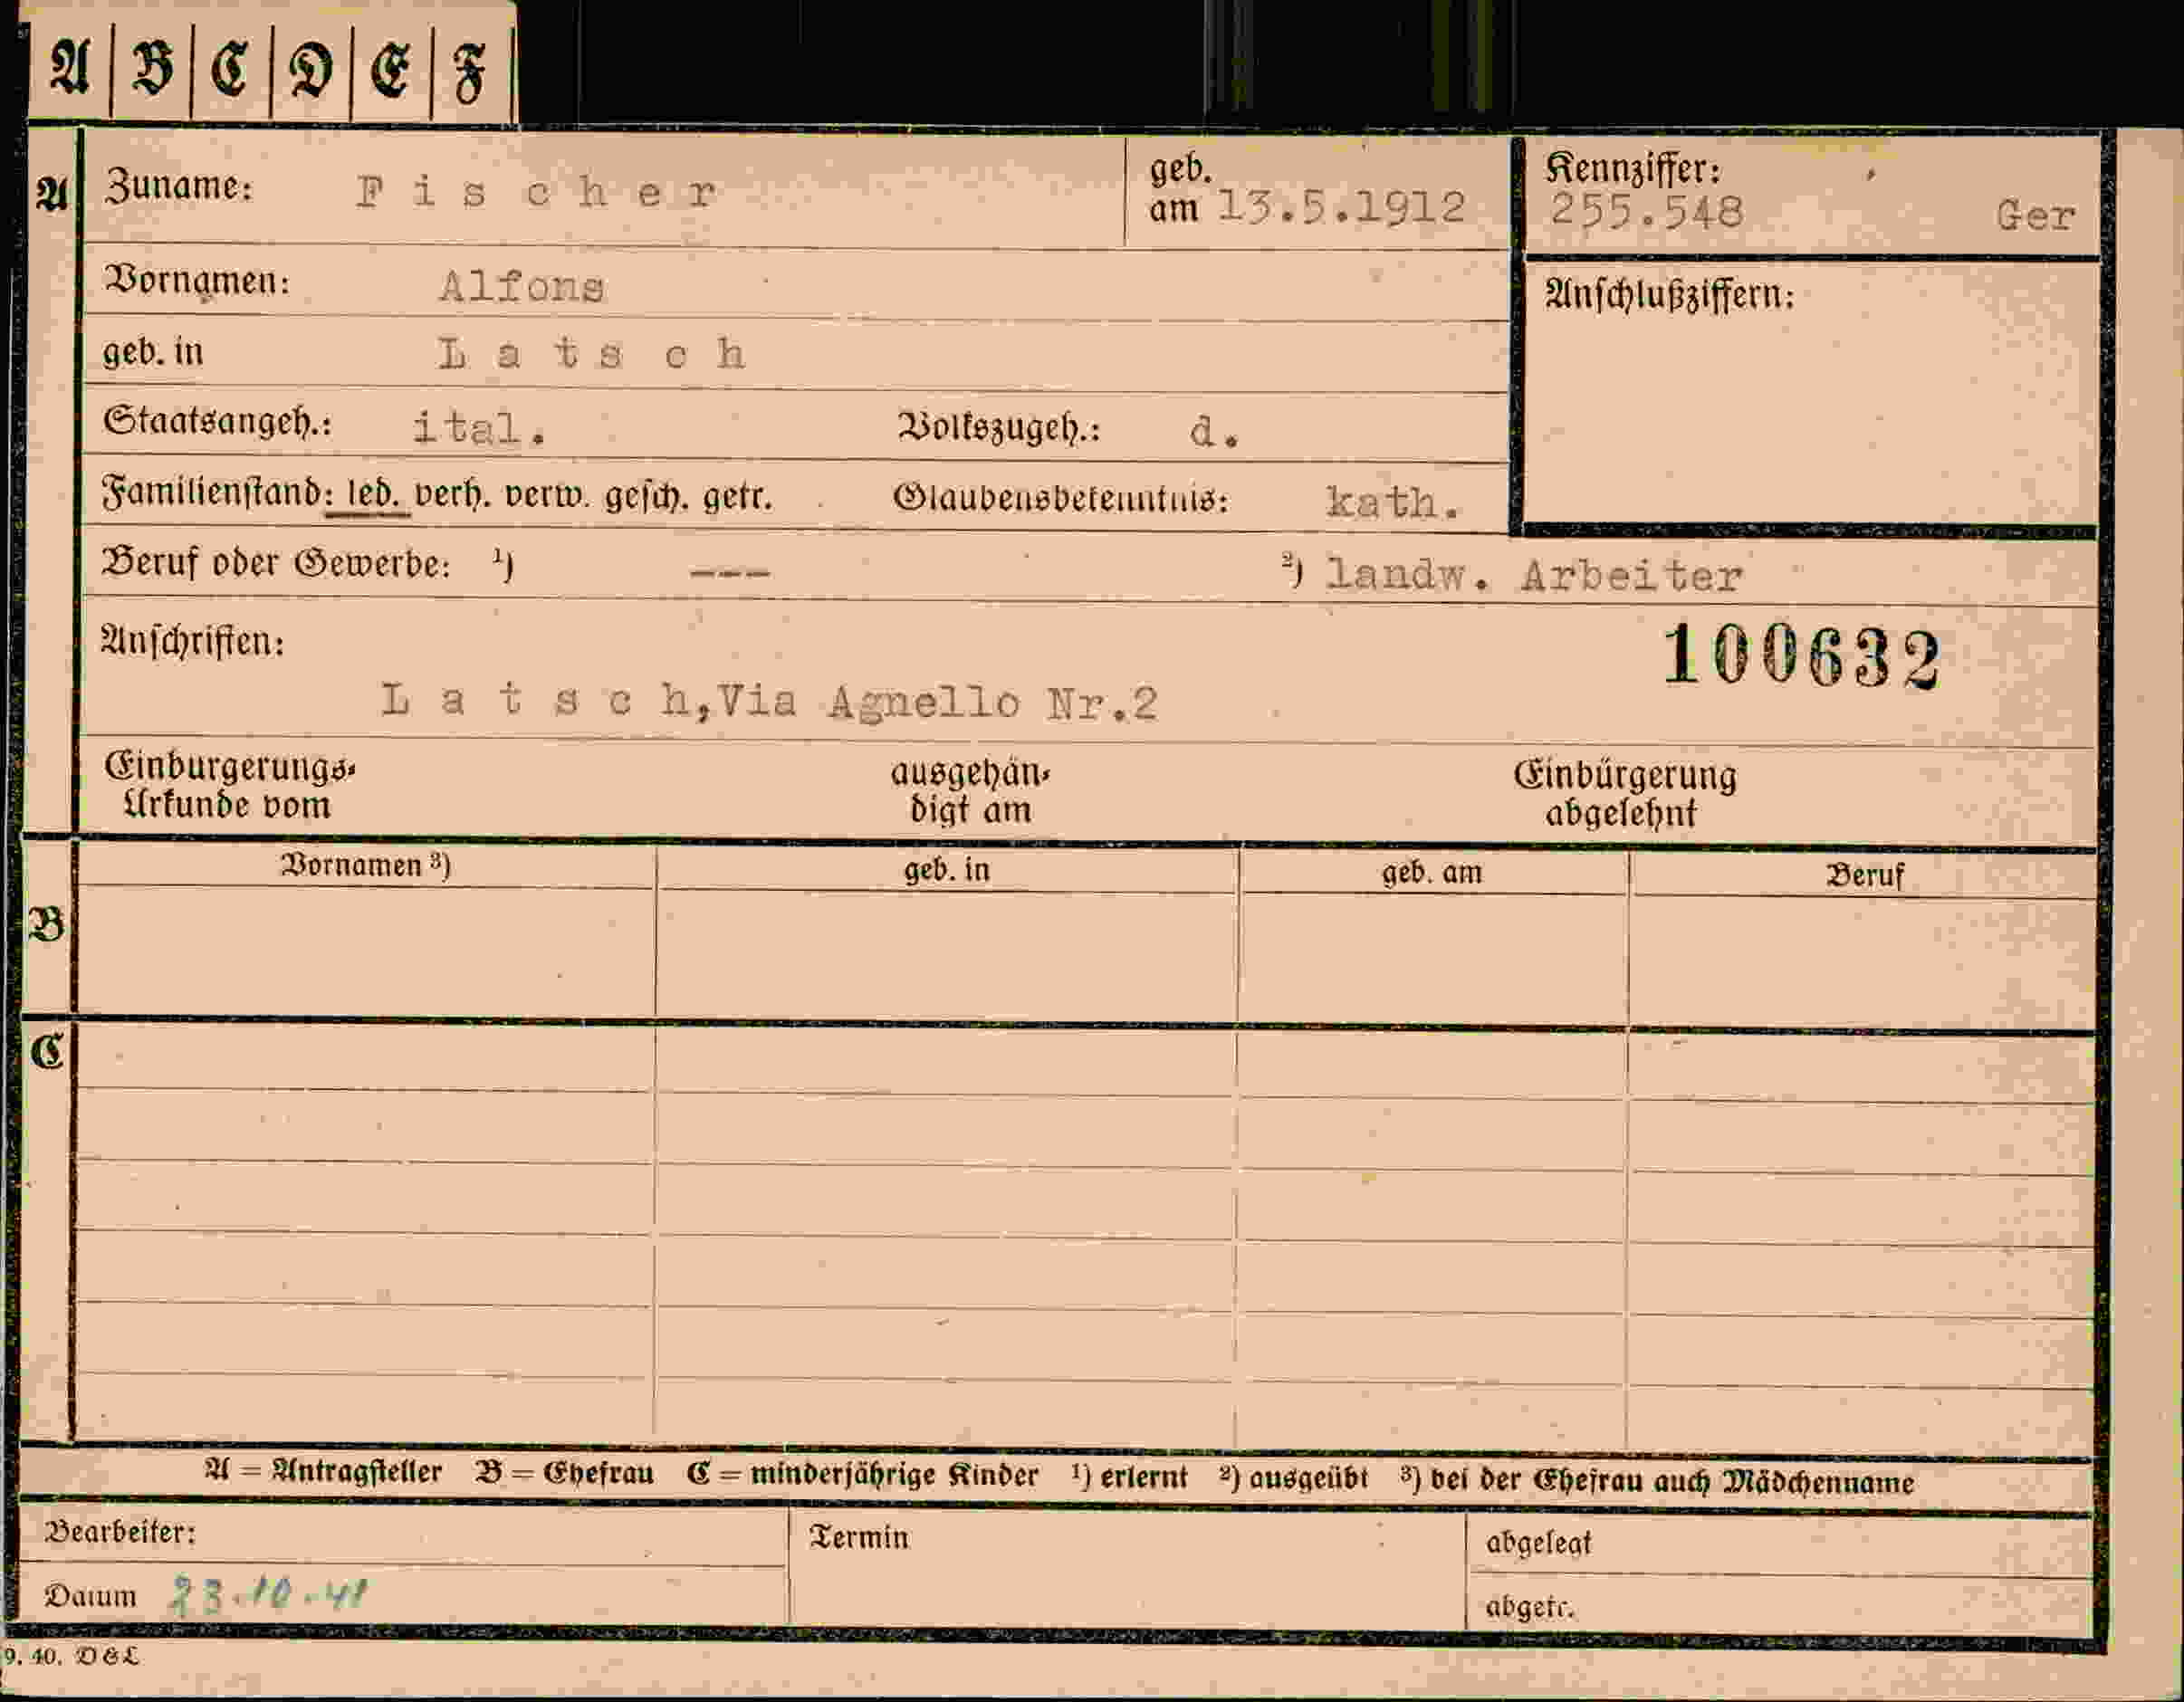 A B C D E F
A Zuname: Fischer geb. am 13.5.1912 Kennziffer: 255.548 Ger
Vornamen: Alfons Anschlußziffern:
geb. in Latsch
Staatsangeh.: ital. Volkszugeh.: d.
Familienstand: led. verh. verw. gesch. getr. Glaubensbekenntnis: kath.
Beruf oder Gewerbe: ¹) --- ²) landw. Arbeiter
Anschriften: 100632
Latsch,Via Agnello Nr.2
Einbürgerungs- ausgehän- Einbürgerung
Urkunde vom digt am abgelehnt
Vornamen ³) geb. in geb. am Beruf
B
C
A = Antragsteller B = Ehefrau C = minderjährige Kinder ¹) erlernt ²) ausgeübt ³) bei der Ehefrau auch Mädchenname
Bearbeiter: Termin abgelegt
Datum 23.10.41 abgetr.
9. 40. D&L